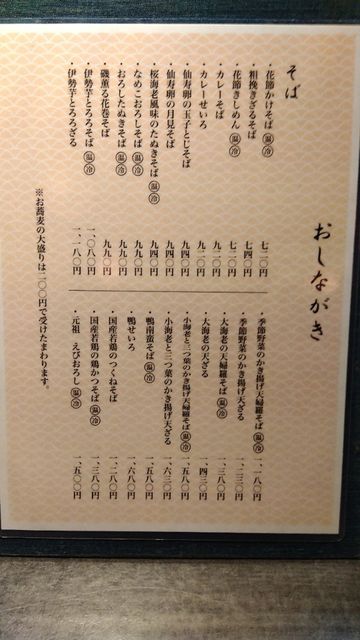 おしながき
そば
・花節かけそば 温 冷 七二〇円
・粗挽きざるそば 七四〇円
・花節きしめん 温 冷 七二〇円
・カレーそば 九二〇円
・カレーせいろ 九二〇円
・仙寿卵の玉子とじそば 九四〇円
・仙寿卵の月見そば 九四〇円
・桜海老風味のたぬきそば 温 冷 九四〇円
・なめこおろしそば 温 冷 九九〇円
・おろしたぬきそば 温 冷 九九〇円
・磯薫る花巻そば 九九〇円
・伊勢芋とろろそば 温 冷 一、〇八〇円
・伊勢芋とろろざる 一、一八〇円
・季節野菜のかき揚げ天婦羅そば 温 冷 一、一八〇円
・季節野菜のかき揚げ天ざる 一、二三〇円
・大海老の天婦羅そば 温 冷 一、三八〇円
・大海老の天ざる 一、四三〇円
・小海老と三つ葉のかき揚げ天婦羅そば 温 冷 一、五八〇円
・小海老と三つ葉のかき揚げ天ざる 一、六三〇円
・鴨南蛮そば 温 冷 一、五八〇円
・鴨せいろ 一、六八〇円
・国産若鶏のつくねそば 一、二八〇円
・国産若鶏の鶏かつそば 温 冷 一、三八〇円
・元祖 えびおろし 温 冷 一、五〇〇円
※お蕎麦の大盛りは二〇〇円で受けたまわります。